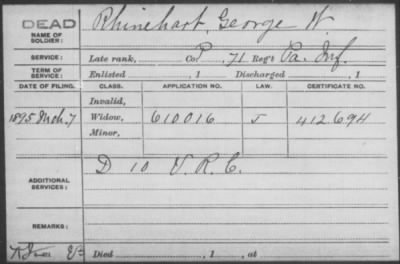 DEAD
Rhinehart, George W.
NAME OF SOLDIER:
SERVICE: Late rank, Co. P, 71 Reg't Pa. Inf.
TERM OF SERVICE: Enlisted , 1 Discharged , 1
DATE OF FILING. CLASS. APPLICATION NO. LAW. CERTIFICATE NO.
Invalid,
1895 Mch. 7 Widow, 610016 J 412694
Minor,
D 10 V. R. C.
ADDITIONAL SERVICES:
REMARKS:
Died , 1 , at